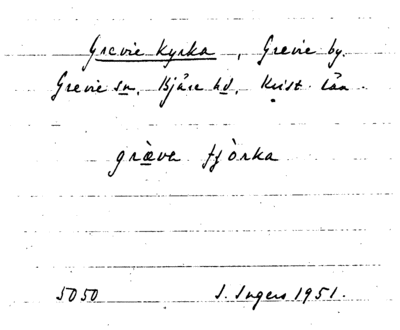 Grevie kyrka, Grevie by.
Grevie sn, Bjäre hd, Krist län
græ̀va fjòrka
5050 I. Ingers 1951.